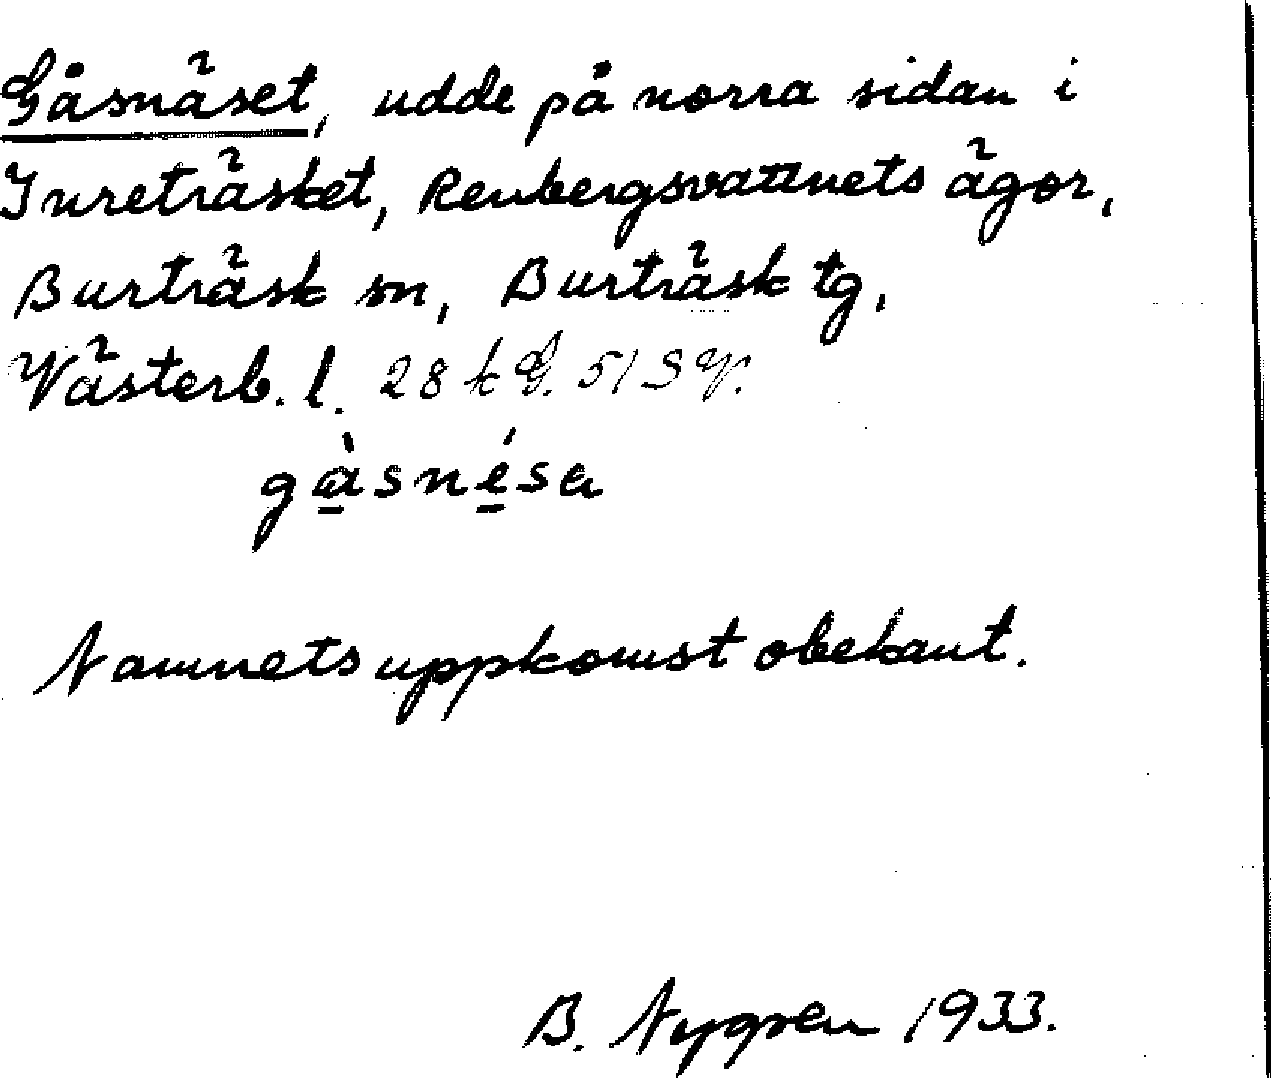 Gåsnäset, udde på norra sidan i
Inreträsket, Renbergsvattnets ägor,
Burträsk sn, Burträsk tg,
Västerb. l. 28 k
gàsnésa
Namnets uppkomst obekant.
B. Nygren 1933.